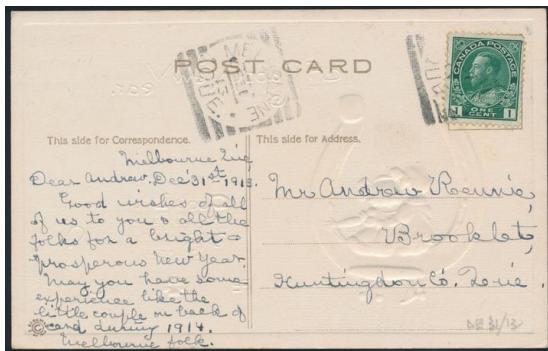 POST CARD
MELBOURNE
QUE.
CANADA POSTAGE
1 ONE CENT 1
This side for Correspondence.
Melbourne Que
Dear Andrew. Dec 31st 1913.
Good wishes of all
of us to you & all the
folks for a bright &
prosperous New Year.
May you have some
experience like the
little couple on back of
card during 1914.
Melbourne folk.
This side for Address.
Mr Andrew Rennie,
Brooklet,
Huntingdon Co. Que.
DE 31/13